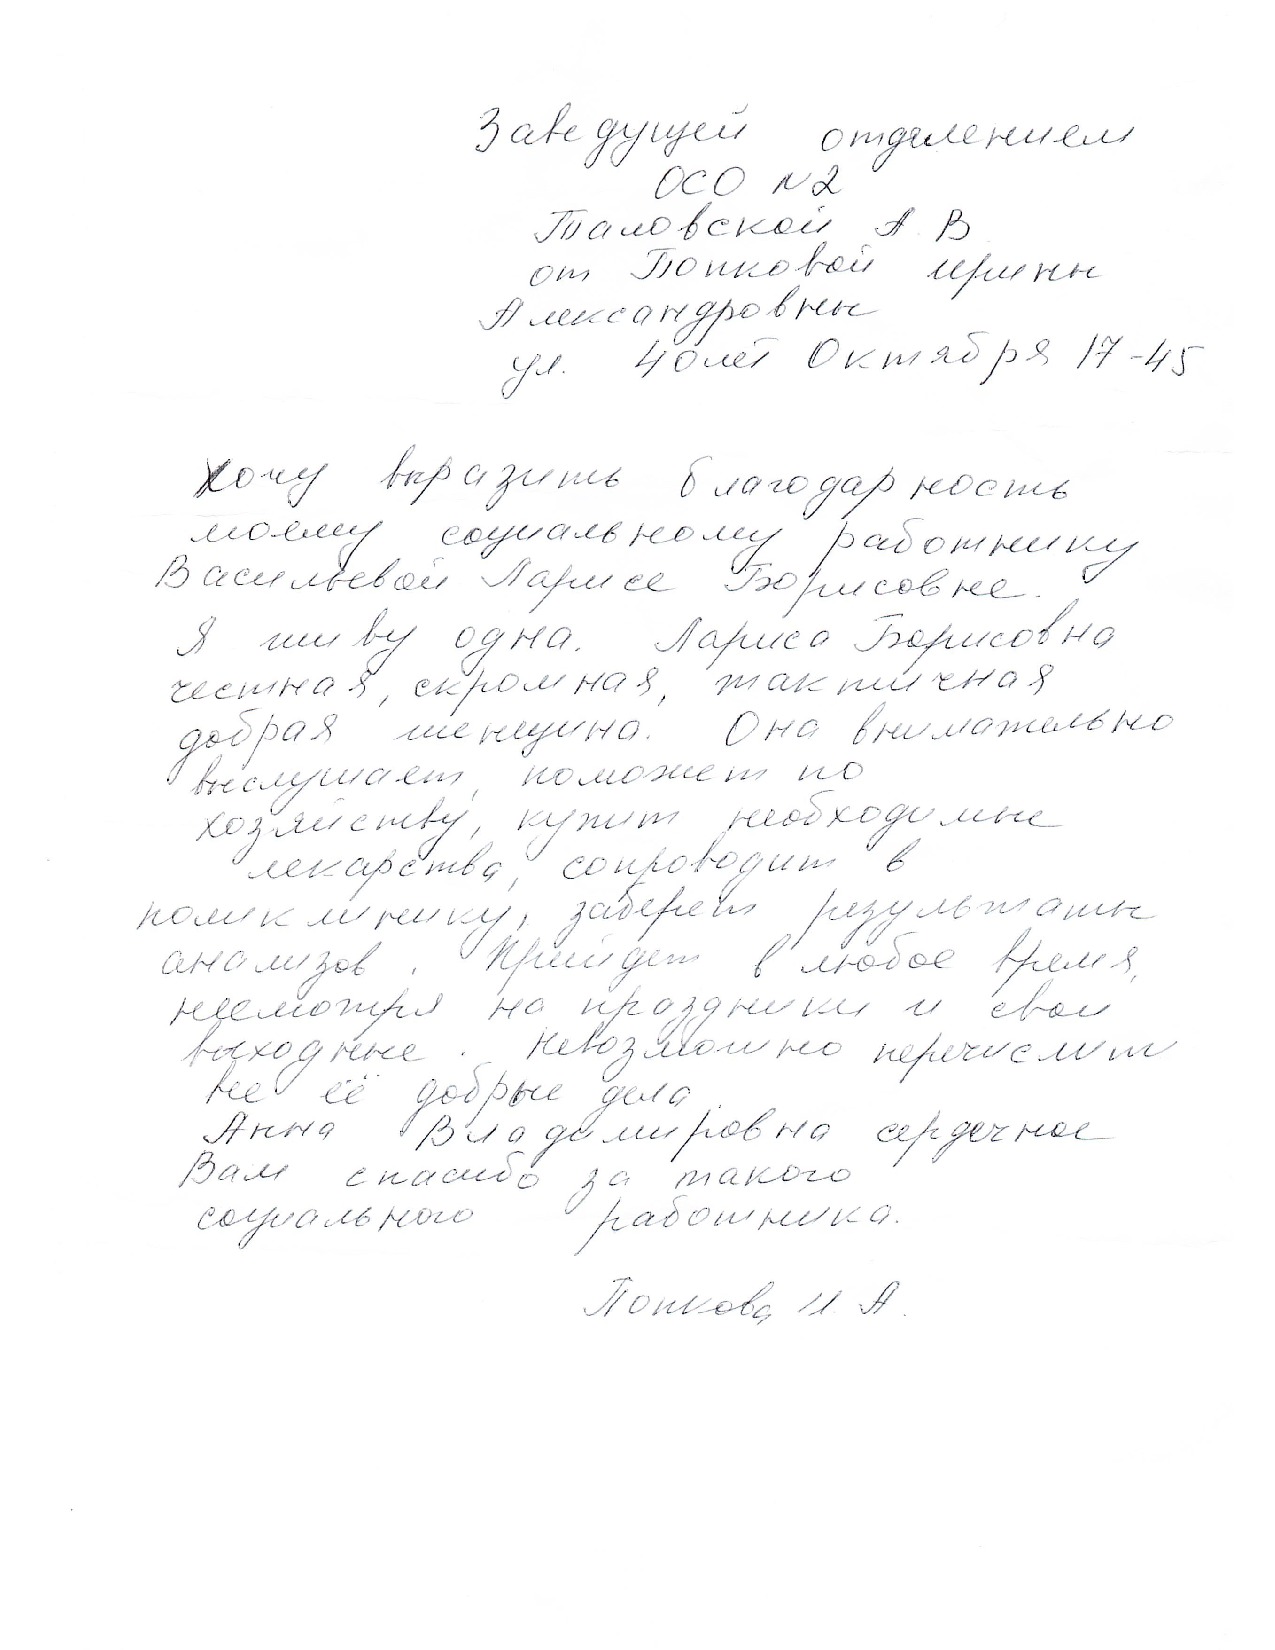 Заведущей отделением
ОСО №2
Таловской А. В
от Попковой Ирины
Александровны
ул. 40 лет Октября 17-45
Хочу выразить благодарность
моему социальному работнику
Васильевой Ларисе Борисовне.
Я живу одна. Лариса Борисовна
честная, скромная, тактичная
добрая женщина. Она внимательно
выслушает, поможет по
хозяйству, купит необходимые
лекарства, сопроводит в
поликлинику, заберет результаты
анализов. Прийдет в любое время,
несмотря на праздники и свои
выходные. Невозможно перечислит
все её добрые дела.
Анна Владимировна сердечное
Вам спасибо за такого
социального работника.
Попкова И. А.